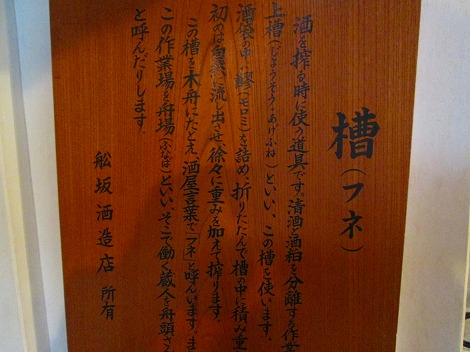 槽(フネ)
酒を搾る時に使う道具です。清酒と酒粕を分離する作業
上槽(じょうそう・あげふね)といい、この槽を使います。
酒袋の中へ醪(モロミ)を詰め、折りたたんで槽の中に積み重
初めは自然に流し出させ、徐々に重みを加えて搾ります。
この槽を木舟にたとえ、酒屋言葉で「フネ」と呼んいます。ま
この作業場を舟場(ふなば)といい、そこで働く蔵人を舟頭さん
と呼んだりします。
舩坂酒造店 所有